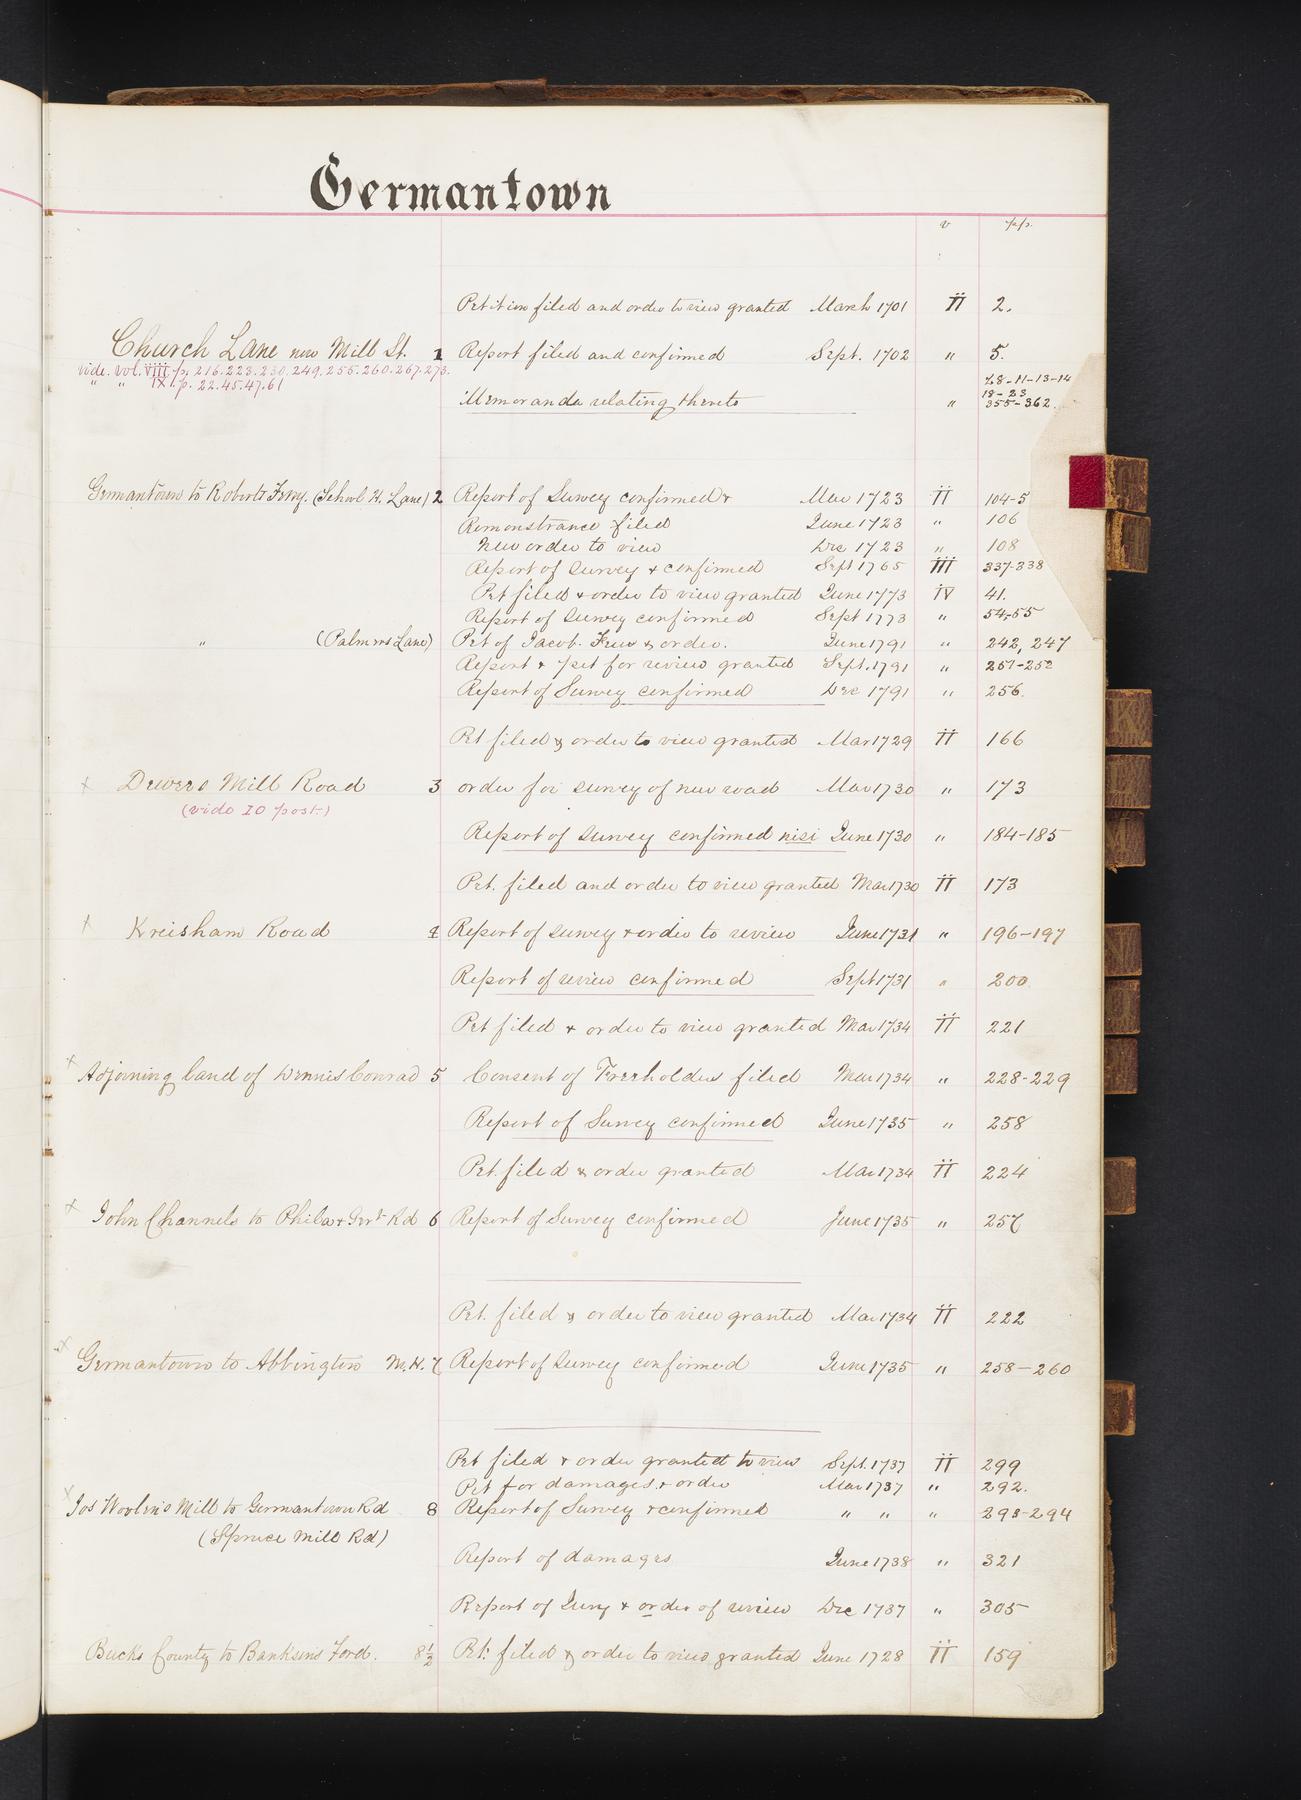 Germantown
v pp.
Petition filed and order to view granted March 1701 II 2.
Church Lane now Mill St. 1 Report filed and confirmed Sept. 1702 " 5.
vide. vol. VIII p. 216.223.230.249.255.260.267.273.
" " IX p. 22.45.47.61
7.8-11-13-14
18-23
Memoranda relating thereto " 355-362.
Germantown to Roberts Ferry. (School H. Lane) 2 Report of Survey confirmed Mar 1723 II 104-5
Remonstrance filed June 1723 " 106
New order to view Dec 1723 " 108
Report of Survey + confirmed Sept 1765 III 337-338
Pet filed + order to view granted June 1773 IV 41.
Report of Survey confirmed Sept 1773 " 54-55
" (Palmers Lane) Pet of Jacob & order. June 1791 " 242, 247
Report + pet for review granted Sept. 1791 " 251-252
Report of Survey confirmed Dec 1791 " 256.
Pet filed & order to view granted Mar 1729 II 166
x Dewers Mill Road 3 order for survey of new road Mar 1730 " 173
(vide 10 post.)
Report of Survey confirmed nisi June 1730 " 184-185
Pet. filed and order to view granted Mar 1730 II 173
x Kreisham Road 4 Report of survey + order to review June 1731 " 196-197
Report of review confirmed Sept 1731 " 200
Pet filed + order to view granted Mar 1734 II 221
x Adjoining land of Dennis Conrad 5 Consent of Freeholders filed Mar 1734 " 228-229
Report of Survey confirmed June 1735 " 258
Pet. filed & order granted Mar 1734 II 224
x John Channels to Phila + Grt Rd 6 Report of Survey confirmed June 1735 " 257
Pet. filed & order to view granted Mar 1734 II 222
x Germantown to Abbington M.H. 7 Report of Survey confirmed June 1735 " 258-260
Pet filed + order granted to view Sept. 1737 II 299
Pet for damages + order Mar 1737 " 292.
x Jos Woolens Mill to Germantown Rd 8 Report of Survey + confirmed " " " 293-294
(Spruce Mill Rd)
Report of damages June 1738 " 321
Report of Jury + order of review Dec 1737 " 305
Bucks County to Banksons Ford. 8½ Pet: filed & order to view granted June 1728 II 159
K
M
N